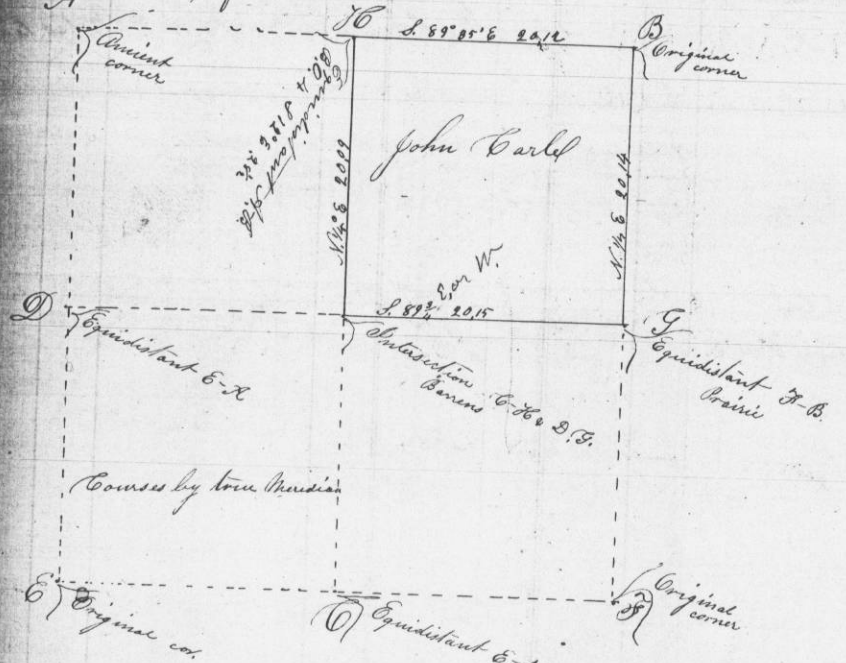 H
S. 89° 85' E 20,12
B
Original
corner
Ancient
corner
Equidistant
B.O. 4 S 19° E
John Carl
N. ¼° E 2009
N. ¼ E 20,14
E, or W.
S. 89¾ 20,15
D
Equidistant E-A
Intersection
Barrens C-H & D.G.
G
Equidistant F-B.
Prairie
Courses by true Meridian
E
Original cor.
C
Equidistant
F
Original
corner